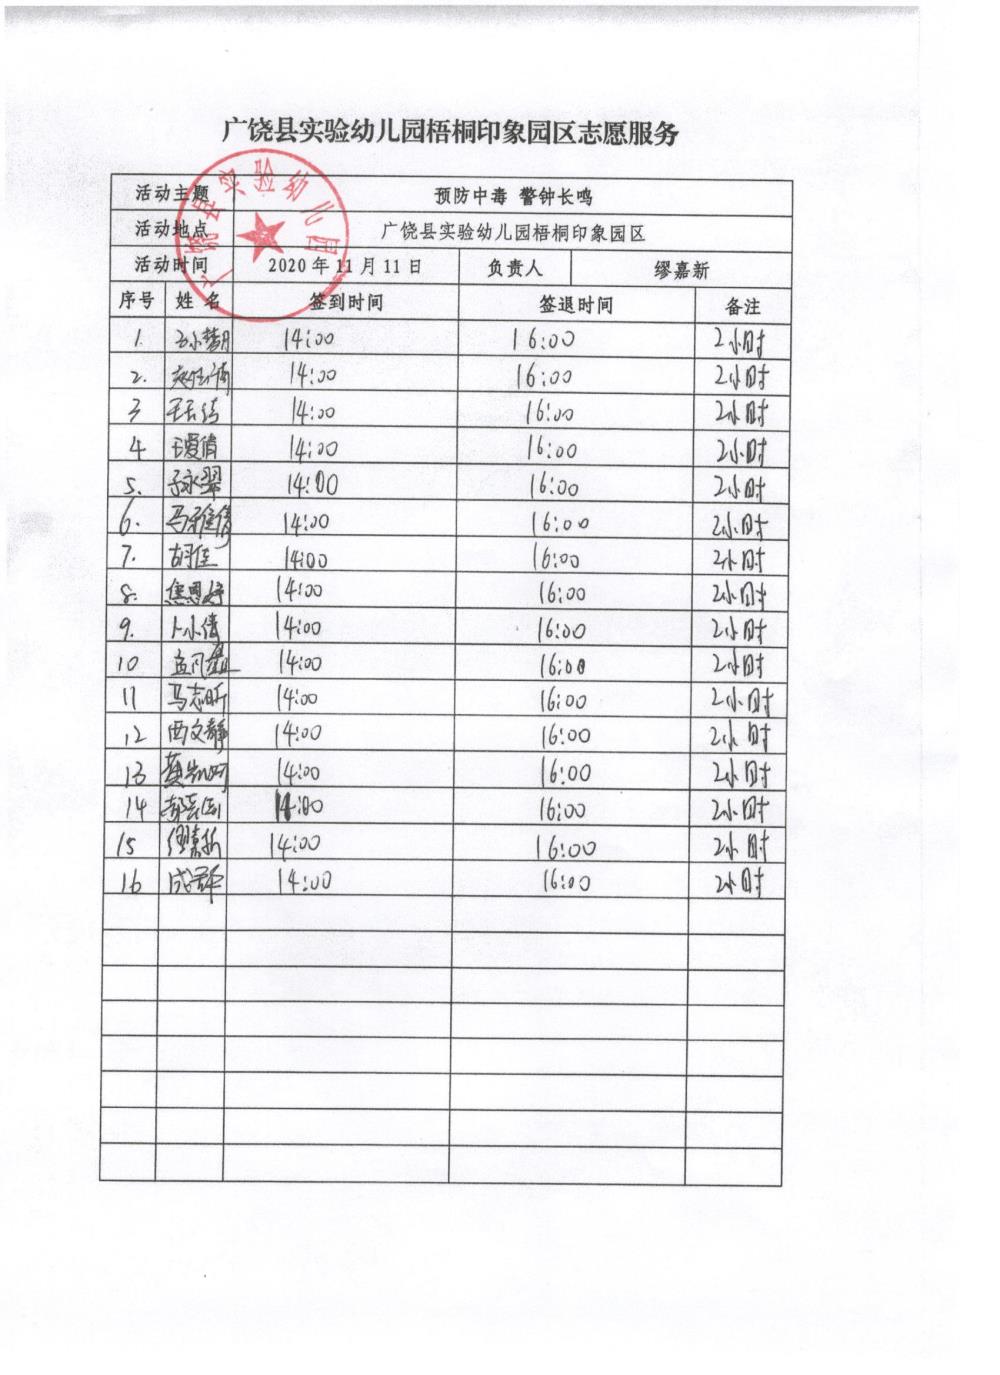 广饶县实验幼儿园梧桐印象园区志愿服务
活动主题 预防中毒 警钟长鸣
活动地点 广饶县实验幼儿园梧桐印象园区
活动时间 2020年11月11日 负责人 缪嘉新
广饶县实验幼儿园
序号 姓名 签到时间 签退时间 备注
1. 14:00 16:00 2小时
2. 14:00 16:00 2小时
3 14:00 16:00 2小时
4 14:00 16:00 2小时
5. 14:00 16:00 2小时
6. 14:00 16:00 2小时
7. 胡佳 14:00 16:00 2小时
8. 焦恩婷 14:00 16:00 2小时
9. 卜小倩 14:00 16:00 2小时
10 14:00 16:00 2小时
11 马志昕 14:00 16:00 2小时
12 西文静 14:00 16:00 2小时
13 14:00 16:00 2小时
14 14:00 16:00 2小时
15 缪嘉新 14:00 16:00 2小时
16 14:00 16:00 2小时